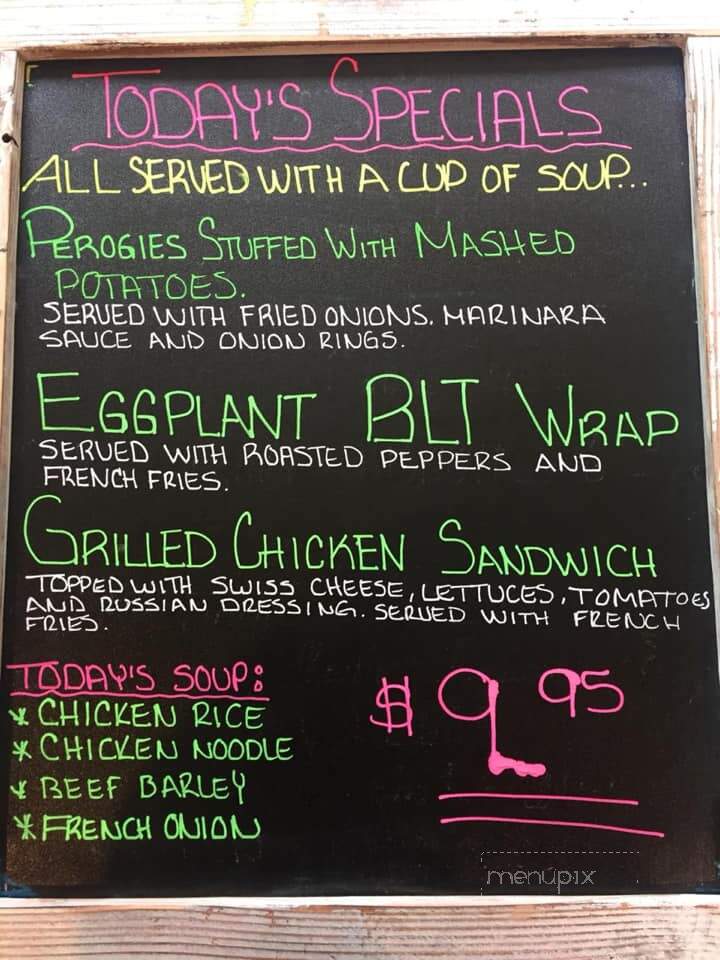 TODAY'S SPECIALS
ALL SERVED WITH A CUP OF SOUP...
PEROGIES STUFFED WITH MASHED
POTATOES.
SERVED WITH FRIED ONIONS. MARINARA
SAUCE AND ONION RINGS.
EGGPLANT BLT WRAP
SERVED WITH ROASTED PEPPERS AND
FRENCH FRIES.
GRILLED CHICKEN SANDWICH
TOPPED WITH SWISS CHEESE, LETTUCES, TOMATOES
AND RUSSIAN DRESSING. SERVED WITH FRENCH
FRIES.
TODAY'S SOUP:
* CHICKEN RICE
* CHICKEN NOODLE
* BEEF BARLEY
* FRENCH ONION
$ 9.95
menupix